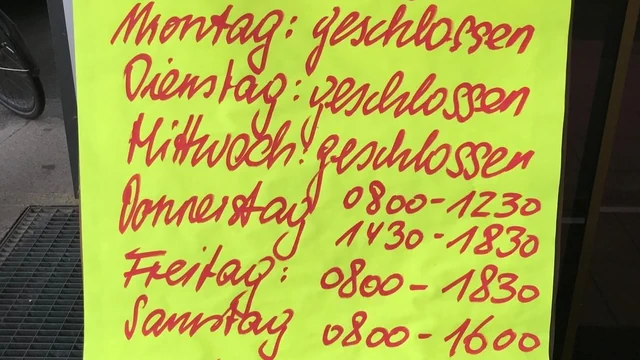 Montag: geschlossen
Dienstag: geschlossen
Mittwoch: geschlossen
Donnerstag 0800-1230
1430-1830
Freitag: 0800-1830
Samstag 0800-1600